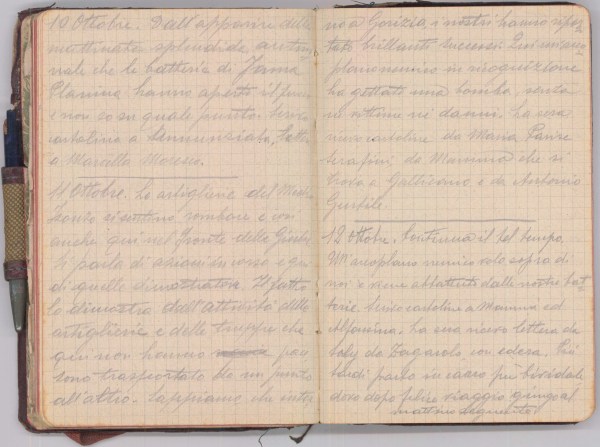 10 Ottobre. Dall'apparire della
mattinata splendida autun-
nale che le batterie di Jama
Planina hanno aperto il fuoco
e non so su quale punto. Scrivo
cartolina a
a Marcello Moresco.
11 Ottobre. Le artiglierie del Medi-
Isonzo si sentono rombare e così
anche qui nel fronte delle Giulie
Si parla di azioni in corso e qui
di quelle dimostrative. Il fatto
lo dimostra dall'attività delle
artiglierie e delle truppe che
qui non hanno pace
sono trasportate da un punto
all'altro. Sappiamo che intor
no a Gorizia, i nostri hanno ripor
tato brillanti successi. Qui un aero
plano nemico in ricognizione
ha gettato una bomba, senza
né vittime né danni. La sera
ricevo cartoline da Maria Panze
Serafini, da Mammà che si
trova a Gallicano e da Antonio
Gentile.
12 Ottobre. Continua il bel tempo.
Un aeroplano nemico vola sopra di
noi e viene abbattuto dalle nostre bat
terie. Scrivo cartoline a Mammà ed
Alfonsina. La sera ricevo lettera da
da Zagarolo con edera. Più
tardi parto in carro per Cividale
dove dopo felice viaggio giungo al
mattino seguente